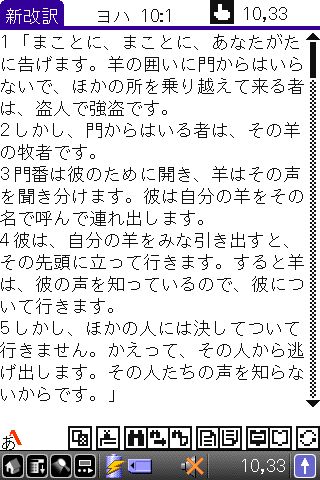 新改訳 ヨハ 10:1 10,33
1「まことに、まことに、あなたがた
に告げます。羊の囲いに門からはいら
ないで、ほかの所を乗り越えて来る者
は、盗人で強盗です。
2しかし、門からはいる者は、その羊
の牧者です。
3門番は彼のために開き、羊はその声
を聞き分けます。彼は自分の羊をその
名で呼んで連れ出します。
4彼は、自分の羊をみな引き出すと、
その先頭に立って行きます。すると羊
は、彼の声を知っているので、彼につ
いて行きます。
5しかし、ほかの人には決してついて
行きません。かえって、その人から逃
げ出します。その人たちの声を知らな
いからです。」
あ
10,33